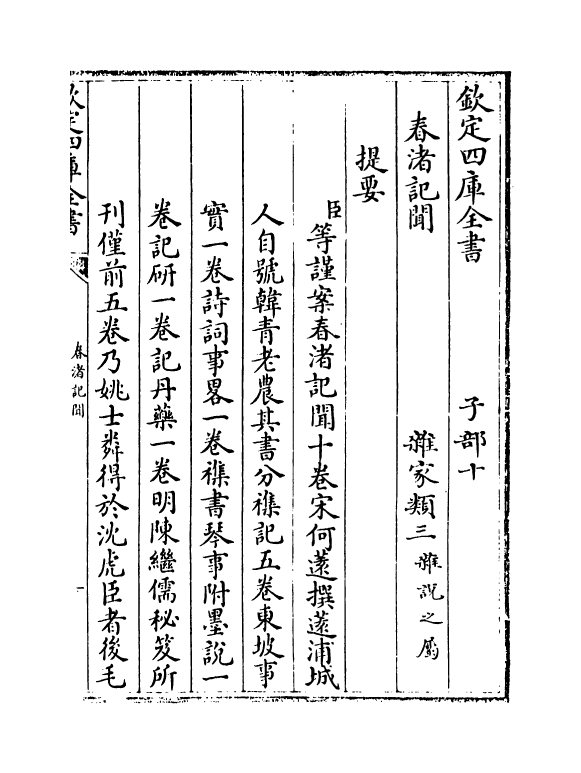 欽定四庫全書　子部十
春渚記聞　雜家類三雜説之屬
提要
臣等謹案春渚記聞十卷宋何薳撰薳浦城
人自號韓青老農其書分襍記五卷東坡事
實一卷詩詞事畧一卷襍書琴事附墨說一
卷記研一卷記丹藥一卷明陳繼儒秘笈所
刊僅前五卷乃姚士粦得於沈虎臣者後毛
欽定四庫全書
春渚記聞
一